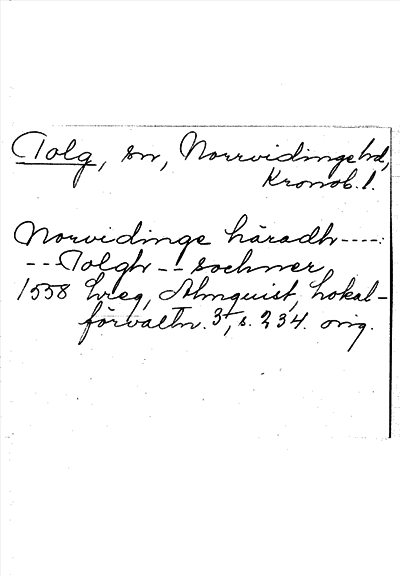 Tolg, sn, Norrvidinge hd,
Kronob. l.
Norvidinge häradh----:
---Tolgh -- sochner
1558 hreg, Almquist, Lokal-
förvaltn. 3, s. 234. orig.